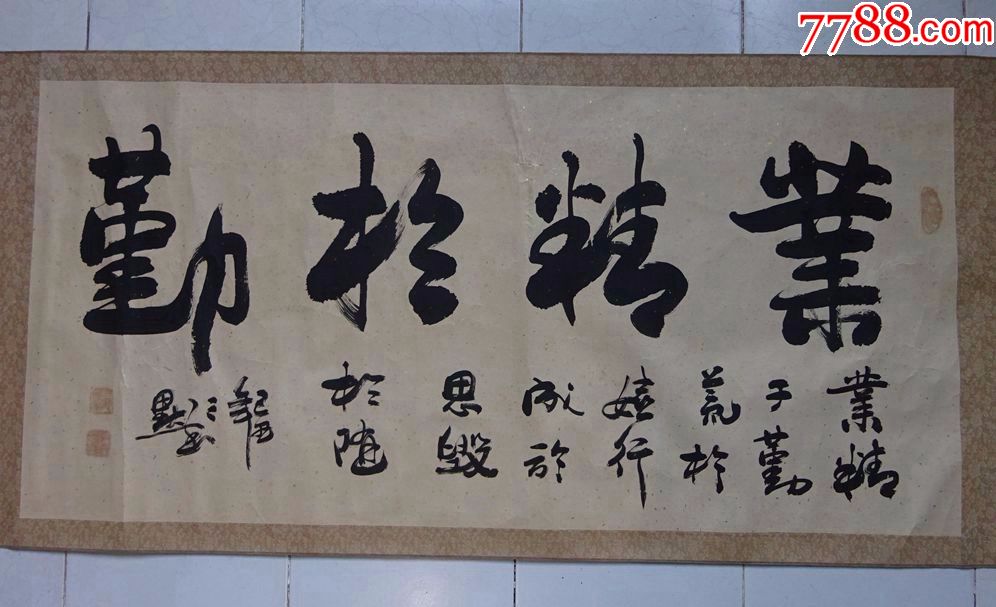 7788.com
業精於勤
業精
于勤
荒於
嬉行
成於
思毀
於随